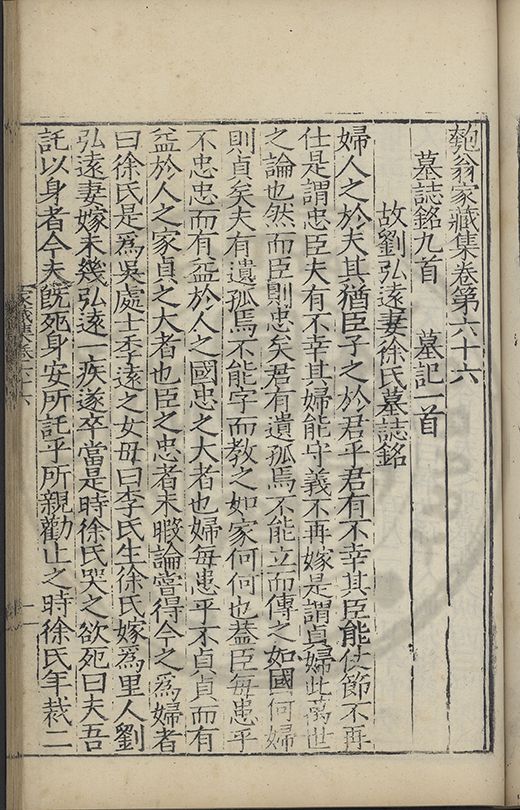 匏翁家藏集卷第六十六
墓誌銘九首　墓記一首
故劉弘遠妻徐氏墓誌銘
婦人之於夫其猶臣子之於君乎君有不幸其臣能仗節不再
仕是謂忠臣夫有不幸其婦能守義不再嫁是謂貞婦此萬世
之論也然而臣則忠矣君有遺孤焉不能立而傳之如國何婦
則貞矣夫有遺孤焉不能字而教之如家何何也葢臣每患乎
不忠忠而有益於人之國忠之大者也婦每患乎不貞貞而有
益於人之家貞之大者也臣之忠者未暇論嘗得今之為婦者
曰徐氏是為吳處士季遠之女母曰李氏生徐氏嫁為里人劉
弘遠妻嫁未幾弘遠一疾遂卒當是時徐氏哭之欲死曰夫吾
託以身者今夫旣死身安所託乎所親勸止之時徐氏年裁二